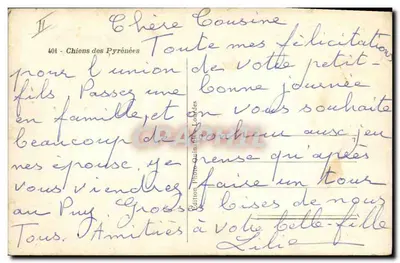 II
Chère Cousine
404 - Chiens des Pyrénées
Toute mes félicitations
pour l'union de votre petit-
fils. Passez une bonne journée
en famille, et on vous souhaite
beaucoup de bonheur aux jeu
nes épouse. je pense qu'après
vous viendrez faire un tour
au Puy. Grosses bises de nous
Tous. Amitiés à votre belle-fille
Lilie